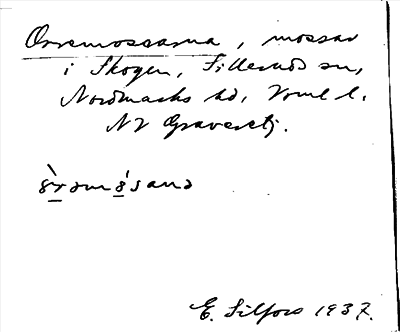 Orremossarna, mossar
i Skogen, Sillerud sn,
Nordmarks hd, Vrml l.
NV Gravsetj.
E. Silfors 1937.